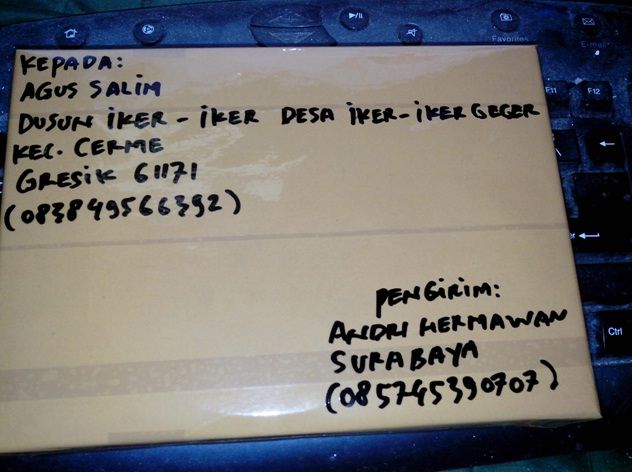 Favorites
E-mail
F11
F12
KEPADA:
AGUS SALIM
DUSUN IKER - IKER DESA IKER-IKER GEGER
KEC. CERME
GRESIK 61171
(083849566392)
PENGIRIM:
ANDRI HERMAWAN
SURABAYA
(085745390707)
Ctrl